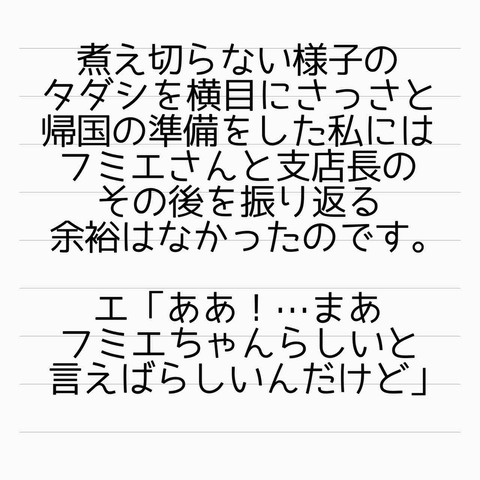 煮え切らない様子の
タダシを横目にさっさと
帰国の準備をした私には
フミエさんと支店長の
その後を振り返る
余裕はなかったのです。
エ「ああ！…まあ
フミエちゃんらしいと
言えばらしいんだけど」